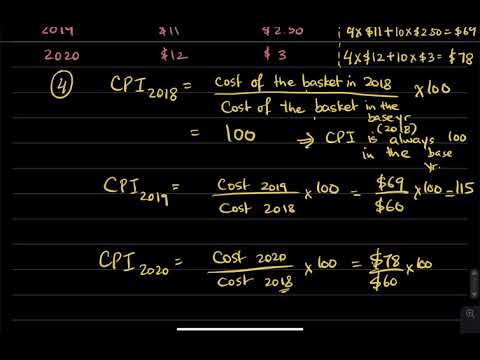 2019 $11 $2.50 4x$11+10x$2.50=$69
2020 $12 $3 4x$12+10x$3=$78
④ CPI2018 = Cost of the basket in 2018 / Cost of the basket in the base yr. (2018) x100
= 100 ⇒ CPI is always 100 in the base yr.
CPI2019 = Cost 2019 / Cost 2018 x 100 = $69 / $60 x100=115
CPI2020 = Cost 2020 / Cost 2018 x 100 = $78 / $60 x 100